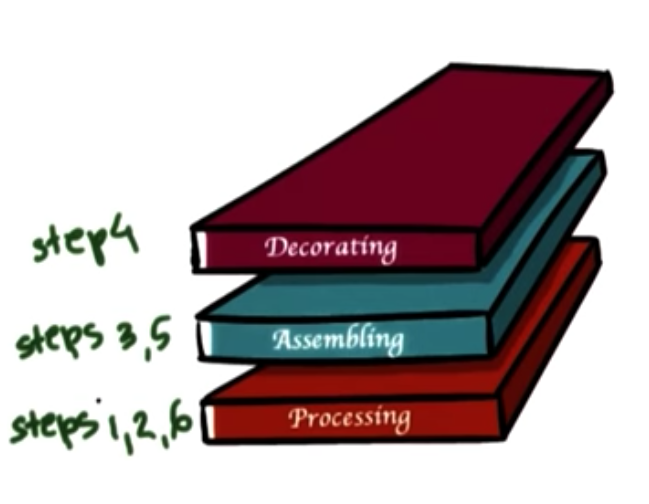 step 4
Decorating
steps 3,5
Assembling
steps 1,2,6
Processing